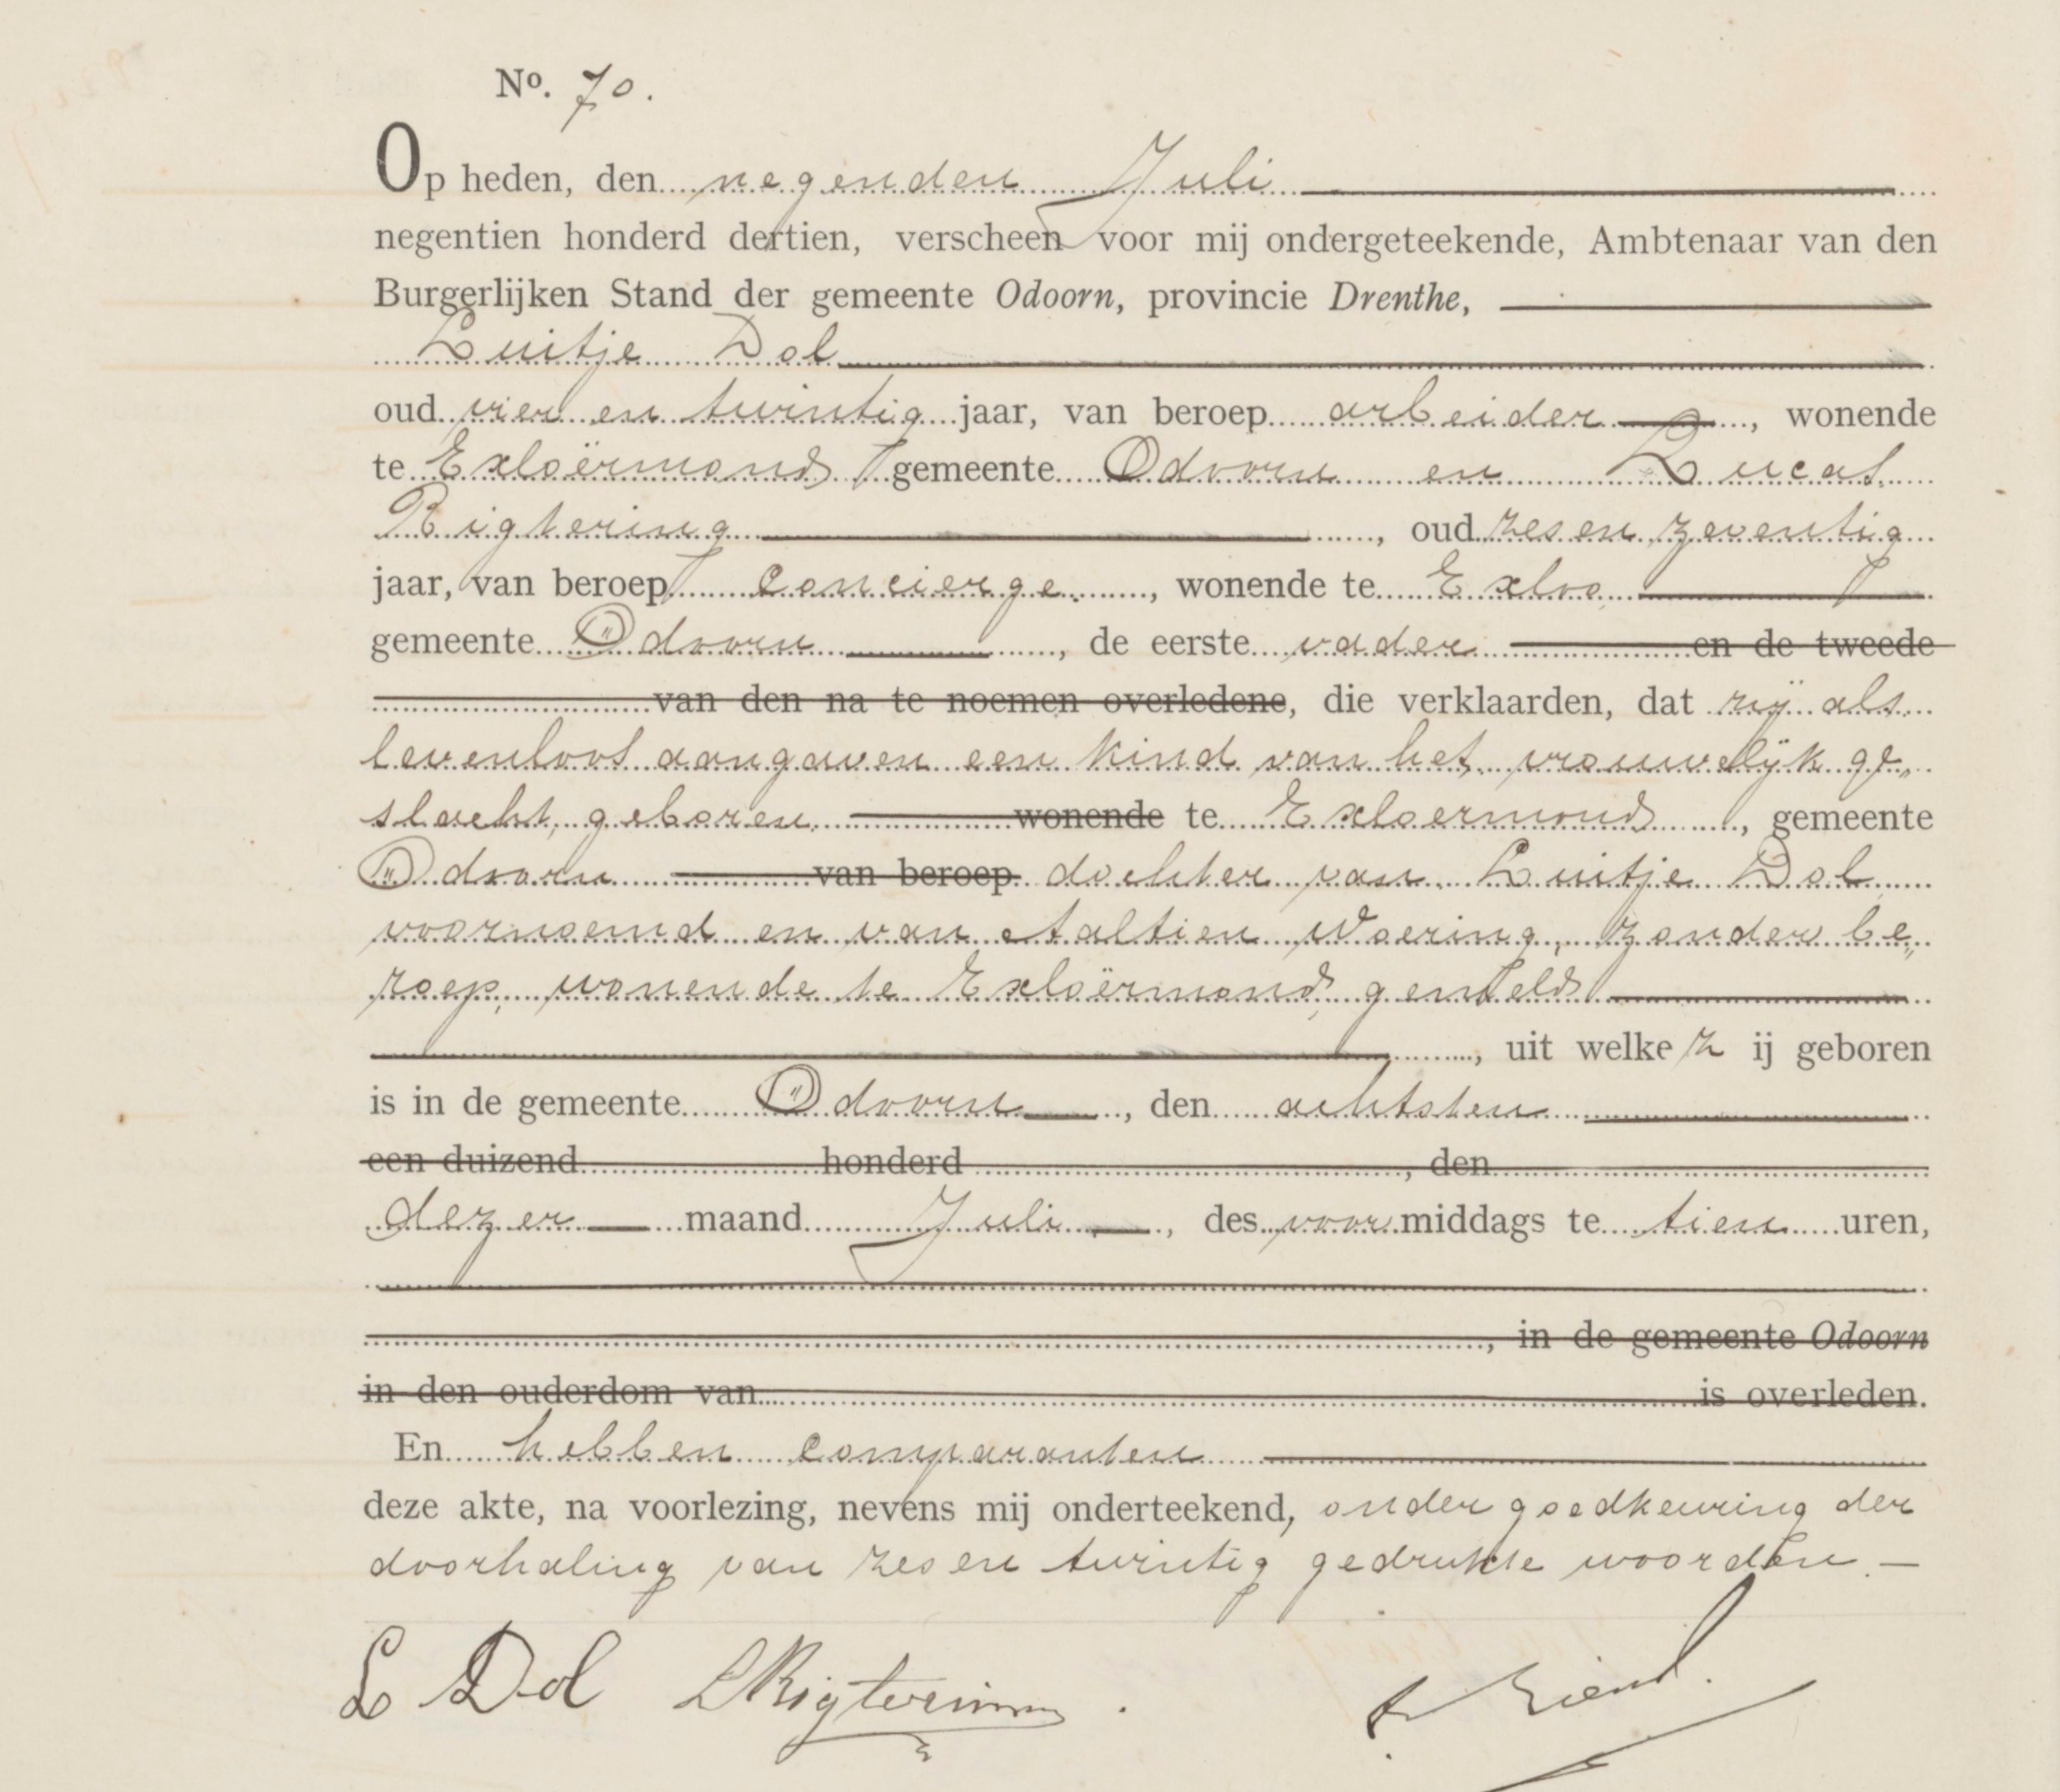 No. 70.
Op heden, den negenden Juli
negentien honderd dertien, verscheen voor mij ondergeteekende, Ambtenaar van den
Burgerlijken Stand der gemeente Odoorn, provincie Drenthe,
Luitje Dol
oud vier en twintig jaar, van beroep arbeider, wonende
te Exloërmond gemeente Odoorn en Lucas
Rigtering, oud zes en zeventig
jaar, van beroep concierge, wonende te Exloo
gemeente Odoorn, de eerste vader en de tweede
van den na te noemen overledene, die verklaarden, dat zij als
levenloos aangaven een kind van het vrouwelijk ge„
slacht, geboren wonende te Exloermond, gemeente
Odoorn van beroep dochter van Luitje Dol
voornoemd en van Taltien Woering, zonder be„
roep, wonende te Exloërmond, gemeld
, uit welke zij geboren
is in de gemeente Odoorn, den achtsten
een duizend honderd, den
dezer maand Juli, des voormiddags te tien uren,
, in de gemeente Odoorn
in den ouderdom van is overleden.
En hebben comparanten
deze akte, na voorlezing, nevens mij onderteekend, onder goedkeuring der
doorhaling van zes en twintig gedrukte woorden.—
L Dol LRigtering.